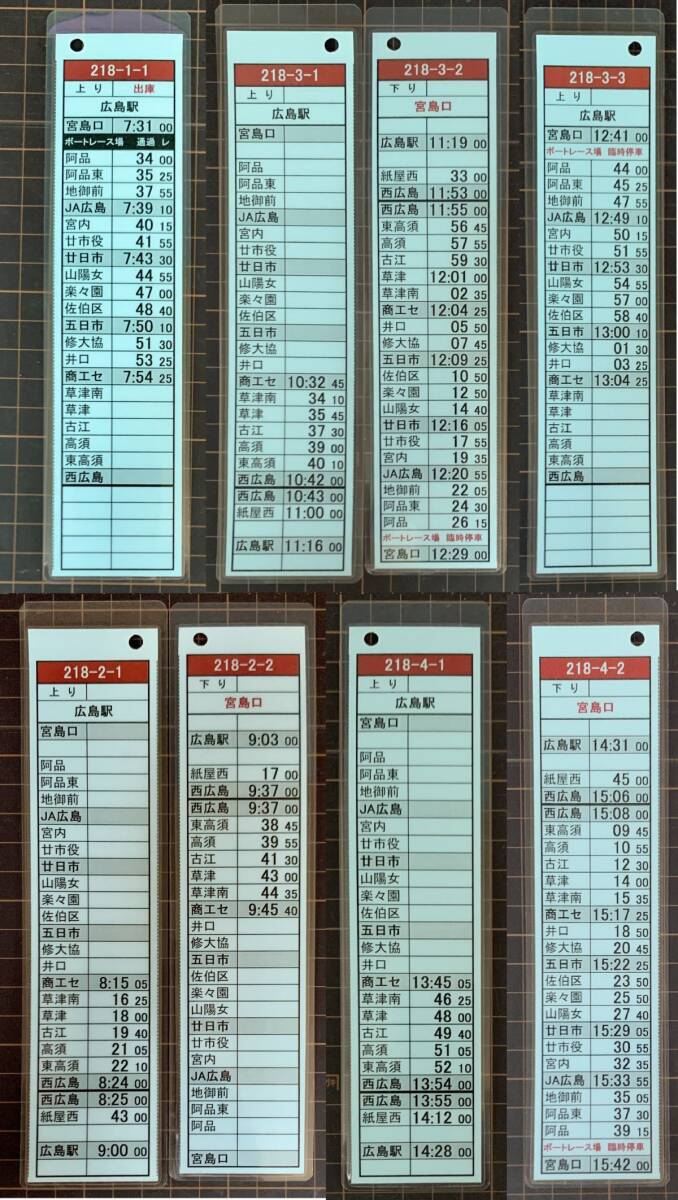 218-1-1
上り 出庫
広島駅
宮島口 7:31 00
ボートレース場 通過 レ
阿品 34 00
阿品東 35 25
地御前 37 55
JA広島 7:39 10
宮内 40 15
廿市役 41 55
廿日市 7:43 30
山陽女 44 55
楽々園 47 00
佐伯区 48 40
五日市 7:50 10
修大協 51 30
井口 53 25
商工セ 7:54 25
草津南
草津
古江
高須
東高須
西広島
218-3-1
上り
広島駅
宮島口
阿品
阿品東
地御前
JA広島
宮内
廿市役
廿日市
山陽女
楽々園
佐伯区
五日市
修大協
井口
商工セ 10:32 45
草津南 34 10
草津 35 45
古江 37 30
高須 39 00
東高須 40 10
西広島 10:42 00
西広島 10:43 00
紙屋西 11:00 00
広島駅 11:16 00
218-3-2
下り
宮島口
広島駅 11:19 00
紙屋西 33 00
西広島 11:53 00
西広島 11:55 00
東高須 56 45
高須 57 55
古江 59 30
草津 12:01 00
草津南 02 35
商工セ 12:04 25
井口 05 50
修大協 07 45
五日市 12:09 25
佐伯区 10 50
楽々園 12 50
山陽女 14 40
廿日市 12:16 05
廿市役 17 55
宮内 19 35
JA広島 12:20 55
地御前 22 05
阿品東 24 30
阿品 26 15
ボートレース場 臨時停車
宮島口 12:29 00
218-3-3
上り
広島駅
宮島口 12:41 00
ボートレース場 臨時停車
阿品 44 00
阿品東 45 25
地御前 47 55
JA広島 12:49 10
宮内 50 15
廿市役 51 55
廿日市 12:53 30
山陽女 54 55
楽々園 57 00
佐伯区 58 40
五日市 13:00 10
修大協 01 30
井口 03 25
商工セ 13:04 25
草津南
草津
古江
高須
東高須
西広島
218-2-1
上り
広島駅
宮島口
阿品
阿品東
地御前
JA広島
宮内
廿市役
廿日市
山陽女
楽々園
佐伯区
五日市
修大協
井口
商工セ 8:15 05
草津南 16 25
草津 18 00
古江 19 40
高須 21 05
東高須 22 10
西広島 8:24 00
西広島 8:25 00
紙屋西 43 00
広島駅 9:00 00
218-2-2
下り
宮島口
広島駅 9:03 00
紙屋西 17 00
西広島 9:37 00
西広島 9:37 00
東高須 38 45
高須 39 55
古江 41 30
草津 43 00
草津南 44 35
商工セ 9:45 40
井口
修大協
五日市
佐伯区
楽々園
山陽女
廿日市
廿市役
宮内
JA広島
地御前
阿品東
阿品
宮島口
218-4-1
上り
広島駅
宮島口
阿品
阿品東
地御前
JA広島
宮内
廿市役
廿日市
山陽女
楽々園
佐伯区
五日市
修大協
井口
商工セ 13:45 05
草津南 46 25
草津 48 00
古江 49 40
高須 51 05
東高須 52 10
西広島 13:54 00
西広島 13:55 00
紙屋西 14:12 00
広島駅 14:28 00
218-4-2
下り
宮島口
広島駅 14:31 00
紙屋西 45 00
西広島 15:06 00
西広島 15:08 00
東高須 09 45
高須 10 55
古江 12 30
草津 14 00
草津南 15 35
商工セ 15:17 25
井口 18 50
修大協 20 45
五日市 15:22 25
佐伯区 23 50
楽々園 25 50
山陽女 27 40
廿日市 15:29 05
廿市役 30 55
宮内 32 35
JA広島 15:33 55
地御前 35 05
阿品東 37 30
阿品 39 15
ボートレース場 臨時停車
宮島口 15:42 00